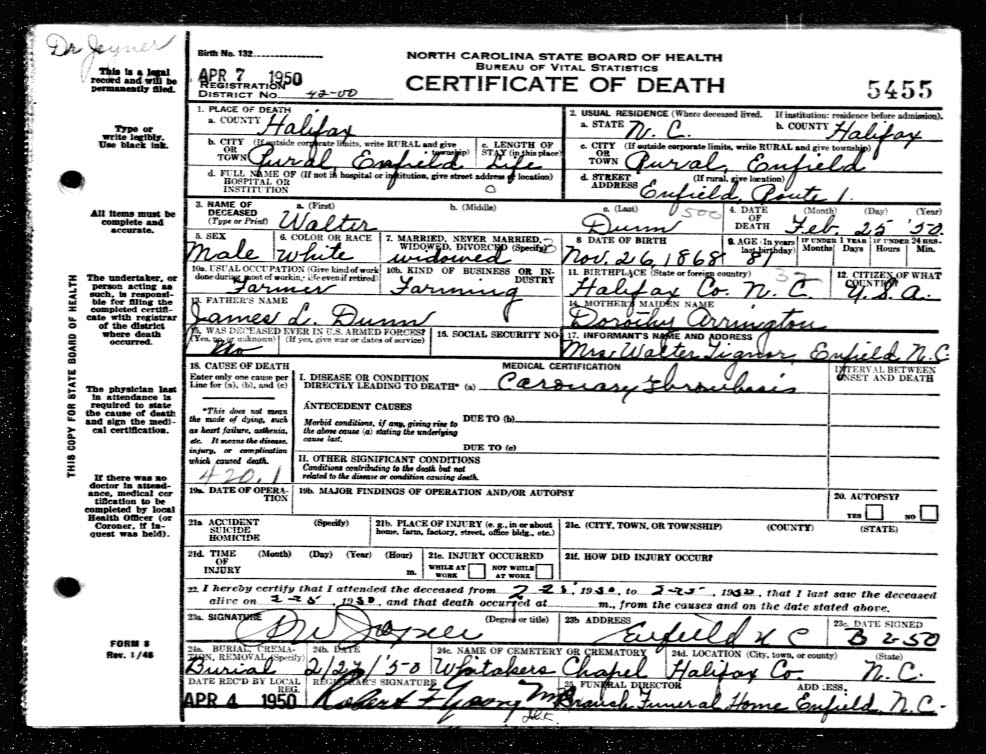 Dr Joyner
Birth No. 132
NORTH CAROLINA STATE BOARD OF HEALTH
BUREAU OF VITAL STATISTICS
CERTIFICATE OF DEATH
5455
APR 7 1950
REGISTRATION
DISTRICT No. 42-00
This is a legal
record and will be
permanently filed.
Type or
write legibly.
Use black ink.
All items must be
complete and
accurate.
The undertaker, or
person acting as
such, is responsi-
ble for filing the
completed certifi-
cate with registrar
of the district
where death
occurred.
The physician last
in attendance is
required to state
the cause of death
and sign the medi-
cal certification.
If there was no
doctor in attend-
ance, medical cer
tification to be
completed by local
Health Officer (or
Coroner, if in-
quest was held).
FORM 8
Rev. 1/48
THIS COPY FOR STATE BOARD OF HEALTH
1. PLACE OF DEATH
a. COUNTY Halifax
b. CITY (If outside corporate limits, write RURAL and give township)
OR
TOWN Rural Enfield
c. LENGTH OF
STAY (in this place)
Life
d. FULL NAME OF (If not in hospital or institution, give street address or location)
HOSPITAL OR
INSTITUTION
2. USUAL RESIDENCE (Where deceased lived. If institution: residence before admission).
a. STATE N. C.
b. COUNTY Halifax
c. CITY (If outside corporate limits, write RURAL and give township)
OR
TOWN Rural, Enfield
d. STREET (If rural, give location)
ADDRESS Enfield, Route 1.
3. NAME OF
DECEASED
(Type or Print)
a. (First) Walter
b. (Middle)
c. (Last) Dunn
500
4. DATE
OF
DEATH
(Month) (Day) (Year)
Feb. 25 '50.
5. SEX
Male
6. COLOR OR RACE
White
7. MARRIED, NEVER MARRIED,
WIDOWED, DIVORCED (Specify)
widowed
3
8 DATE OF BIRTH
Nov. 26, 1868
9. AGE (In years
last birthday)
81
IF UNDER 1 YEAR
Months Days
IF UNDER 24 HRS.
Hours Min.
10a. USUAL OCCUPATION (Give kind of work
done during most of working life, even if retired)
Farmer
10b. KIND OF BUSINESS OR IN-
DUSTRY
Farming
11. BIRTHPLACE (State or foreign country)
Halifax Co. N. C.
12. CITIZEN OF WHAT
COUNTRY?
U.S.A.
13. FATHER'S NAME
James L. Dunn
14. MOTHER'S MAIDEN NAME
Dorothy Arrington
15. WAS DECEASED EVER IN U.S. ARMED FORCES?
(Yes, no, or unknown) (If yes, give war or dates of service)
No
16. SOCIAL SECURITY NO.
17. INFORMANT'S NAME AND ADDRESS
Mrs. Walter Tignor Enfield, N.C.
18. CAUSE OF DEATH
Enter only one cause per
Line for (a), (b), and (c)
*This does not mean
the mode of dying, such
as heart failure, asthenia,
etc. It means the disease,
injury, or complication
which caused death.
420.1
MEDICAL CERTIFICATION
INTERVAL BETWEEN
ONSET AND DEATH
I. DISEASE OR CONDITION
DIRECTLY LEADING TO DEATH* (a) Coronary Thrombosis
ANTECEDENT CAUSES
Morbid conditions, if any, giving rise to
the above cause (a) stating the underlying
cause last.
DUE TO (b)
DUE TO (c)
II. OTHER SIGNIFICANT CONDITIONS
Conditions contributing to the death but not
related to the disease or condition causing death.
19a. DATE OF OPERA-
TION
19b. MAJOR FINDINGS OF OPERATION AND/OR AUTOPSY
20. AUTOPSY?
YES NO
21a ACCIDENT
SUICIDE
HOMICIDE
(Specify)
21b. PLACE OF INJURY (e. g., in or about
home, farm, factory, street, office bldg., etc.)
21c. (CITY, TOWN, OR TOWNSHIP) (COUNTY) (STATE)
21d. TIME
OF
INJURY
(Month) (Day) (Year) (Hour)
m.
21e. INJURY OCCURRED
WHILE AT
WORK
NOT WHILE
AT WORK
21f. HOW DID INJURY OCCUR?
22. I hereby certify that I attended the deceased from 2-25, 1950, to 2-25, 1950, that I last saw the deceased
alive on 2-25, 1950, and that death occurred at m., from the causes and on the date stated above.
23a. SIGNATURE (Degree or title)
23b ADDRESS
Enfield N C
23c. DATE SIGNED
50
24a. BURIAL, CREMA-
TION, REMOVAL (Specify)
Burial
24b. DATE
2/27/'50
24c. NAME OF CEMETERY OR CREMATORY
Whitakers Chapel
24d. LOCATION (City, town, or county) (State)
Halifax Co. N. C.
DATE REC'D BY LOCAL
REG.
APR 4 1950
REGISTRAR'S SIGNATURE
Robert F Young MD
25. FUNERAL DIRECTOR ADDRESS.
Branch Funeral Home Enfield, N.C.